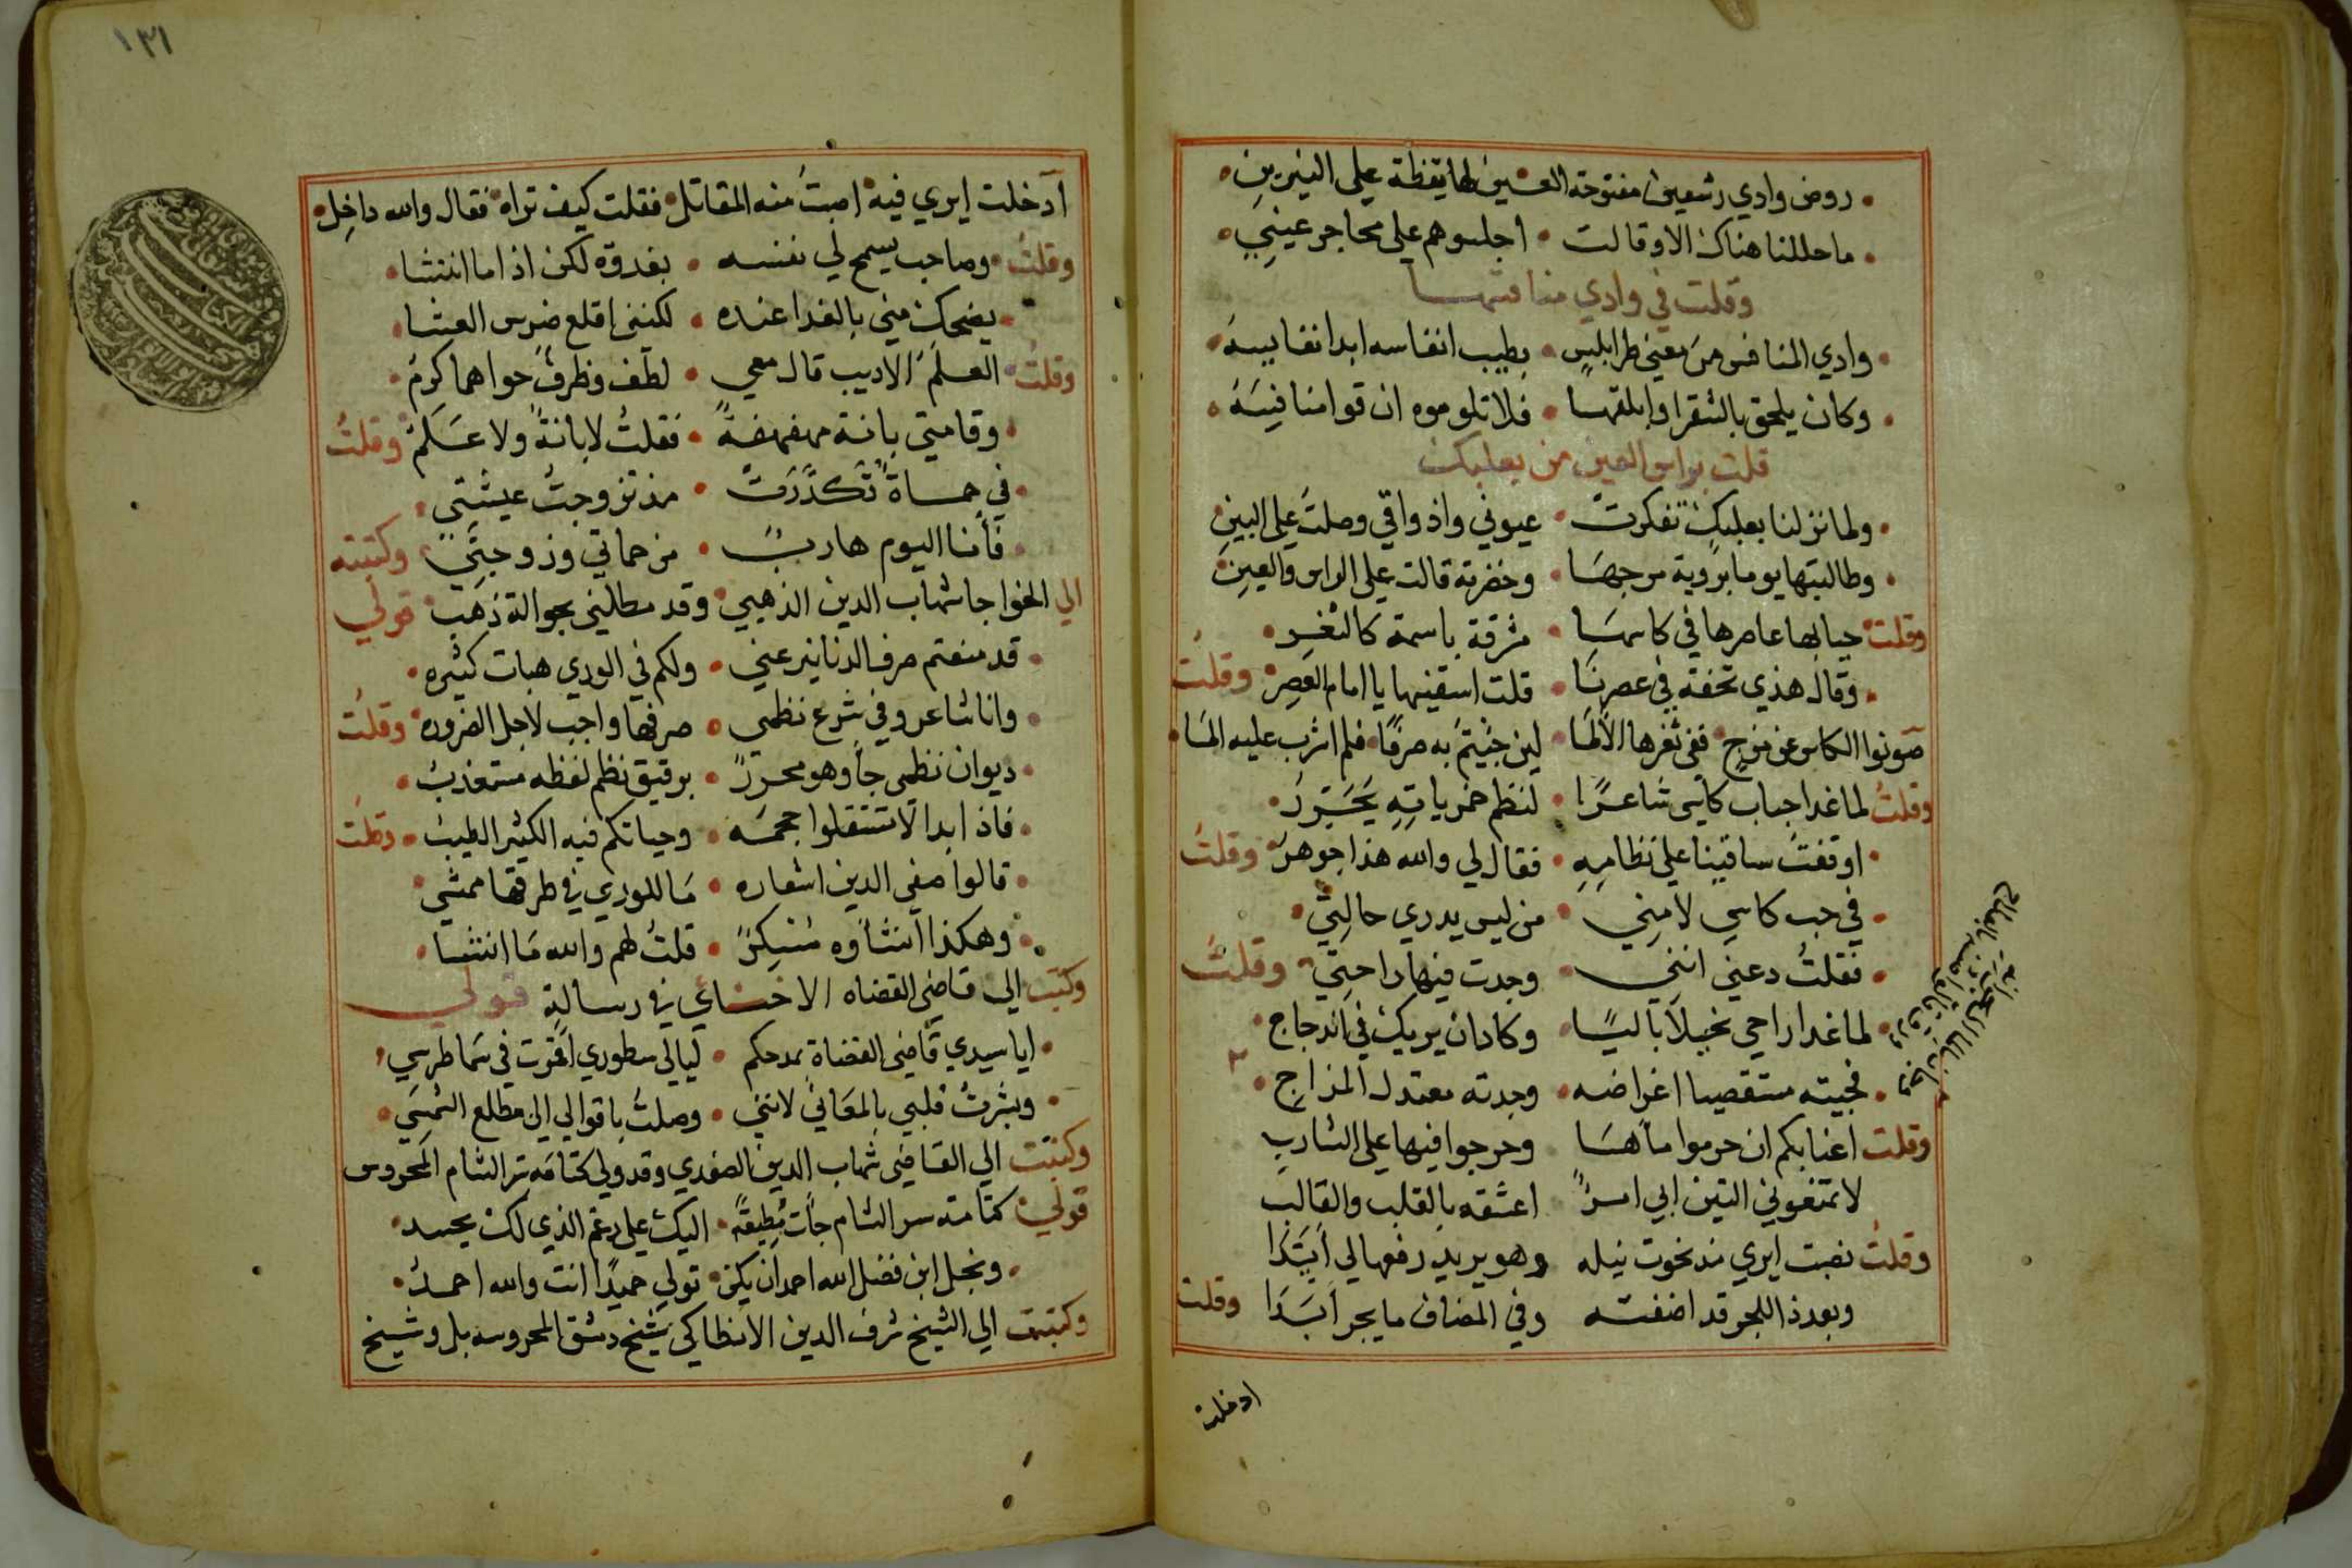 روض وادي رشعين مفتوحة العين لها يقظة علي النيربين
ما حللنا هناك الا وقالت • اجلسوهم علي محاجر عيني
وقلت في وادي منافسها
وادي المنافس من معني طرابلس • بطيب انفاسه ابدا نفايسه
وكان يلحق بالشقرا وابلقها • فلا تلوموه ان قوا منافسه
قلت براس العين من بعلبك
ولما نزلنا بعلبك تفكرت • عيوني واذواقي وصلت علي البين
وطالبتها يوما بروية مرجها • وخضرته قالت علي الراس والعين
وقلت حيا بها عاصرها في كاسها • مشرقة باسمة كالثغر
وقال هذي تحفة في عصرنا • قلت اسقنيها يا امام العصر وقلت
صونوا الكاس عن مزج ففي ثغرها الالما • لين جيتم به صرفا فلم اشرب عليه الما
وقلت لما غدا حباب كاسي شاعرا • لنظم خمرياته
اوقفت ساقينا علي نظامه • فقال لي والله هذا جوهر وقلت
في حب كاسي لامني • من ليس يدري حالتي
فقلت دعني انني • وجدت فيها راحتي وقلت
لما غدا راحي بخيلا باليا • وكاد ان يريك في اندجاج
فجيته مستقصيا اغراضه • وجدته معتدل المزاج
وقلت اعنابكم ان حرموا ماءها وحرجوا فيها علي الشارب
لا تمنعوني التين اني امرؤ اعشقه بالقلب والقالب
وقلت نصبت ايري مذ نحوت نيله وهو يريد رفعها لي ابتدا
وبعد ذا للجر قد اضفته وفي المضاف ما يجر ابدا وقلت
ادخلت
١٣١
ادخلت ايري فيه اصبت منه المقاتل فقلت كيف تراه فقال والله داخل
وقلت وصاحب يسمح لي نفسه • بغدوة لكن اذا ما انتشا
يضحك مني بالغدا عنده • لكنني اقلع ضرس العشا
وقلت العلم الاديب قال معي • لطف وظرف حواهما كرم
وقامتي بانة مهفهفة • فقلت لا بانة ولا علم وقلت
في حماة تكدرت • مذ تزوجت عيشتي
فأنا اليوم هارب • من حماتي وزوجتي وكتبته
الي الخواجا شهاب الدين الذهبي وقد مطلني بحوالة ذهب قولي
قد منعتم صرف الدنانير عني • ولكم في الوري هبات كثيره
وانا شاعر وفي شرع نظمي • صرفها واجب لاجل الضروره وقلت
ديوان نظمي جا وهو محرر • برقيق نظم لفظه مستعذب
فاذا بدا لا تستقلوا حجمه • وحياتكم فيه الكثير الطيب وقلت
قالوا صفي الدين اشعاره • ما للوري في طرقها ممشي
وهكذا انشاوه مسكر • قلت لهم والله ما انشا
وكتبت الي قاضي القضاه الاخنائي في رسالة قولي
ايا سيدي قاضي القضاة بمدحكم • ليالي سطوري اقمرت في سما طرسي
وبشرت قلبي بالمعاني لانني • وصلت باقوالي الي مطلع الشمس
وكتبت الي القاضي شهاب الدين الصفدي وقد ولي كتامة سر الشام المحروس
قولي كتامة سر الشام جات مطيعة • اليك علي رغم الذي لك يحسد
ونجل ابن فضل الله احمد ان يكن • تولي حميدا انت والله احمد
وكتبت الي الشيخ شرف الدين الانطاكي شيخ دمشق المحروسه بل وشيخ